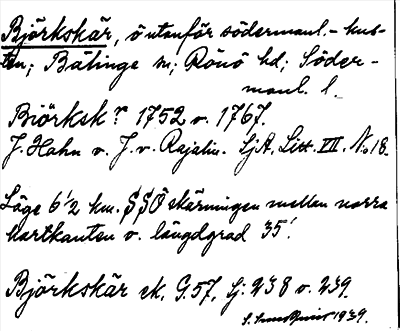 Björkskär, ö utanför södermanl.-kus-
ten; Bälinge sn; Rönö hd; Söder-
manl. l.
Biörksk:r 1752 o. 1767.
J. Hahn o. J. v. Rajalin. SjA, Litt. III. No 18.
Läge 6 1/2 km. SSÖ skärningen mellan norra
kartkanten o. längdgrad 35'.
Björkskär ek. G. 57, Gj: 238 o. 239.
1939.